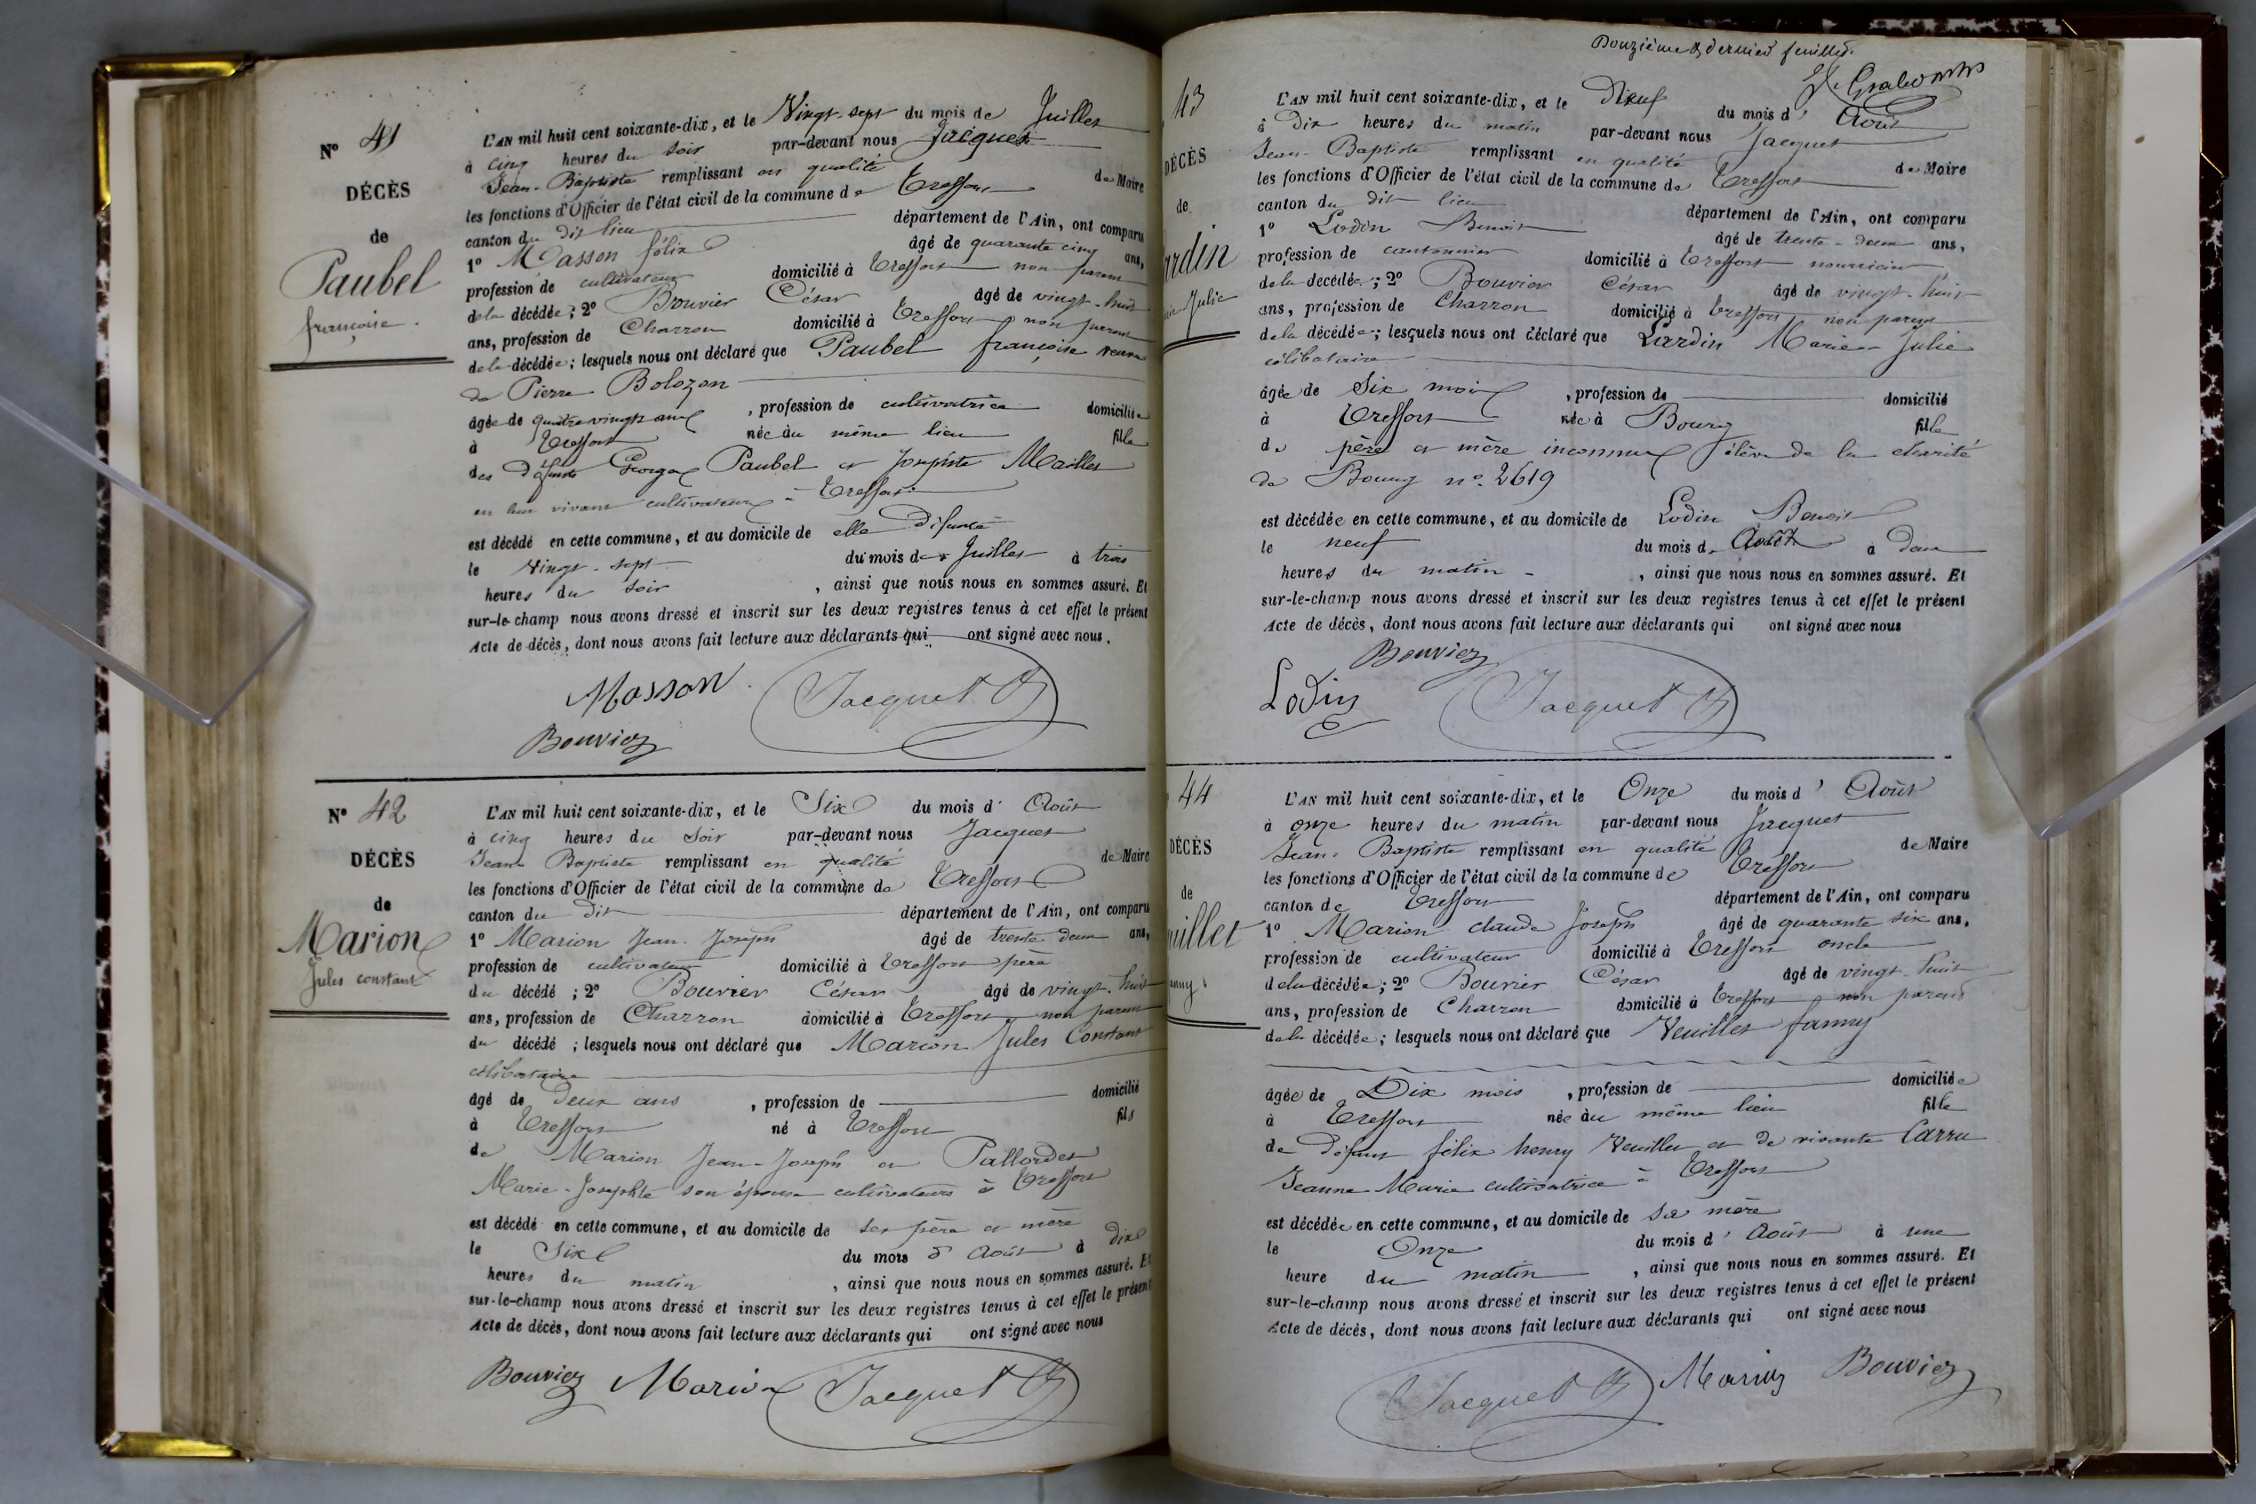 Nº 41
DÉCÈS
de
Paubel
françoise.
L'AN mil huit cent soixante-dix, et le Vingt-sept du mois de Juillet
à cinq heures du soir par-devant nous Jacquet
Jean-Baptiste remplissant en qualité de Maire
les fonctions d'Officier de l'état civil de la commune de Treffort
canton du dit lieu département de l'Ain, ont comparu
1º Masson félix âgé de quarante cinq ans,
profession de cultivateur domicilié à Treffort non parent
de la décédée; 2º Bouvier César âgé de vingt-huit
ans, profession de Charron domicilié à Treffort non parent
de la décédée; lesquels nous ont déclaré que Paubel françoise veuve
de Pierre Bolozon
âgée de quatre vingts ans, profession de cultivatrice domiciliée
à Treffort née au même lieu fille
des défunts George Paubel et Josephte Maillet
en leur vivant cultivateurs à Treffort
est décédé en cette commune, et au domicile de elle défunte
le Vingt-sept du mois de Juillet à trois
heures du soir, ainsi que nous nous en sommes assuré. Et
sur-le-champ nous avons dressé et inscrit sur les deux registres tenus à cet effet le présent
Acte de décès, dont nous avons fait lecture aux déclarants qui ont signé avec nous.
Masson Jacquet
Bouvier
Nº 42
DÉCÈS
de
Marion
Jules constant
L'AN mil huit cent soixante-dix, et le Six du mois d' Août
à cinq heures du Soir par-devant nous Jacquet
Jean Baptiste remplissant en qualité de Maire
les fonctions d'Officier de l'état civil de la commune de Treffort
canton du dit département de l'Ain, ont comparu
1º Marion Jean Joseph âgé de trente deux ans,
profession de cultivateur domicilié à Treffort père
du décédé; 2º Bouvier César âgé de vingt-huit
ans, profession de Charron domicilié à Treffort non parent
du décédé; lesquels nous ont déclaré que Marion Jules Constant
célibataire
âgé de deux ans, profession de domicilié
à Treffort né à Treffort fils
de Marion Jean-Joseph et Pallordet
Marie-Josephte son épouse cultivateurs à Treffort
est décédé en cette commune, et au domicile de ses père et mère
le Six du mois d' Août à dix
heures du matin, ainsi que nous nous en sommes assuré. Et
sur-le-champ nous avons dressé et inscrit sur les deux registres tenus à cet effet le présent
Acte de décès, dont nous avons fait lecture aux déclarants qui ont signé avec nous
Bouvier Marion Jacquet
Douzième & dernier feuillet.
43
DÉCÈS
de
ardin
Julie
L'AN mil huit cent soixante-dix, et le Neuf du mois d' Août
à Dix heures du matin par-devant nous Jacquet
Jean-Baptiste remplissant en qualité de Maire
les fonctions d'Officier de l'état civil de la commune de Treffort
canton du dit lieu département de l'Ain, ont comparu
1º Lodin Benoit âgé de trente-deux ans,
profession de cantonnier domicilié à Treffort nourricier
de la décédée; 2º Bouvier César âgé de vingt-huit
ans, profession de Charron domicilié à Treffort non parent
de la décédée; lesquels nous ont déclaré que Lardin Marie Julie
célibataire
âgée de Six mois, profession de domicilié
à Treffort née à Bourg fille
de père et mère inconnus élève de la charité
de Bourg nº. 2619
est décédée en cette commune, et au domicile de Lodin Benoit
le neuf du mois d' Août à Deux
heures du matin, ainsi que nous nous en sommes assuré. Et
sur-le-champ nous avons dressé et inscrit sur les deux registres tenus à cet effet le présent
Acte de décès, dont nous avons fait lecture aux déclarants qui ont signé avec nous
Bouvier
Lodin Jacquet
44
DÉCÈS
de
uillet
anny.
L'AN mil huit cent soixante-dix, et le Onze du mois d' Août
à onze heures du matin par-devant nous Jacquet
Jean-Baptiste remplissant en qualité de Maire
les fonctions d'Officier de l'état civil de la commune de Treffort
canton de Treffort département de l'Ain, ont comparu
1º Marion claude Joseph âgé de quarante six ans,
profession de cultivateur domicilié à Treffort oncle
de la décédée; 2º Bouvier César âgé de vingt-huit
ans, profession de Charron domicilié à Treffort non parent
de la décédée; lesquels nous ont déclaré que Veuillet fanny
âgée de Dix mois, profession de domiciliée
à Treffort née au même lieu fille
de Défunt félix henry Veuillet et de vivante Carru
Jeanne Marie cultivatrice à Treffort
est décédée en cette commune, et au domicile de sa mère
le Onze du mois d' Août à une
heure du matin, ainsi que nous nous en sommes assuré. Et
sur-le-champ nous avons dressé et inscrit sur les deux registres tenus à cet effet le présent
Acte de décès, dont nous avons fait lecture aux déclarants qui ont signé avec nous
Jacquet Marion Bouvier